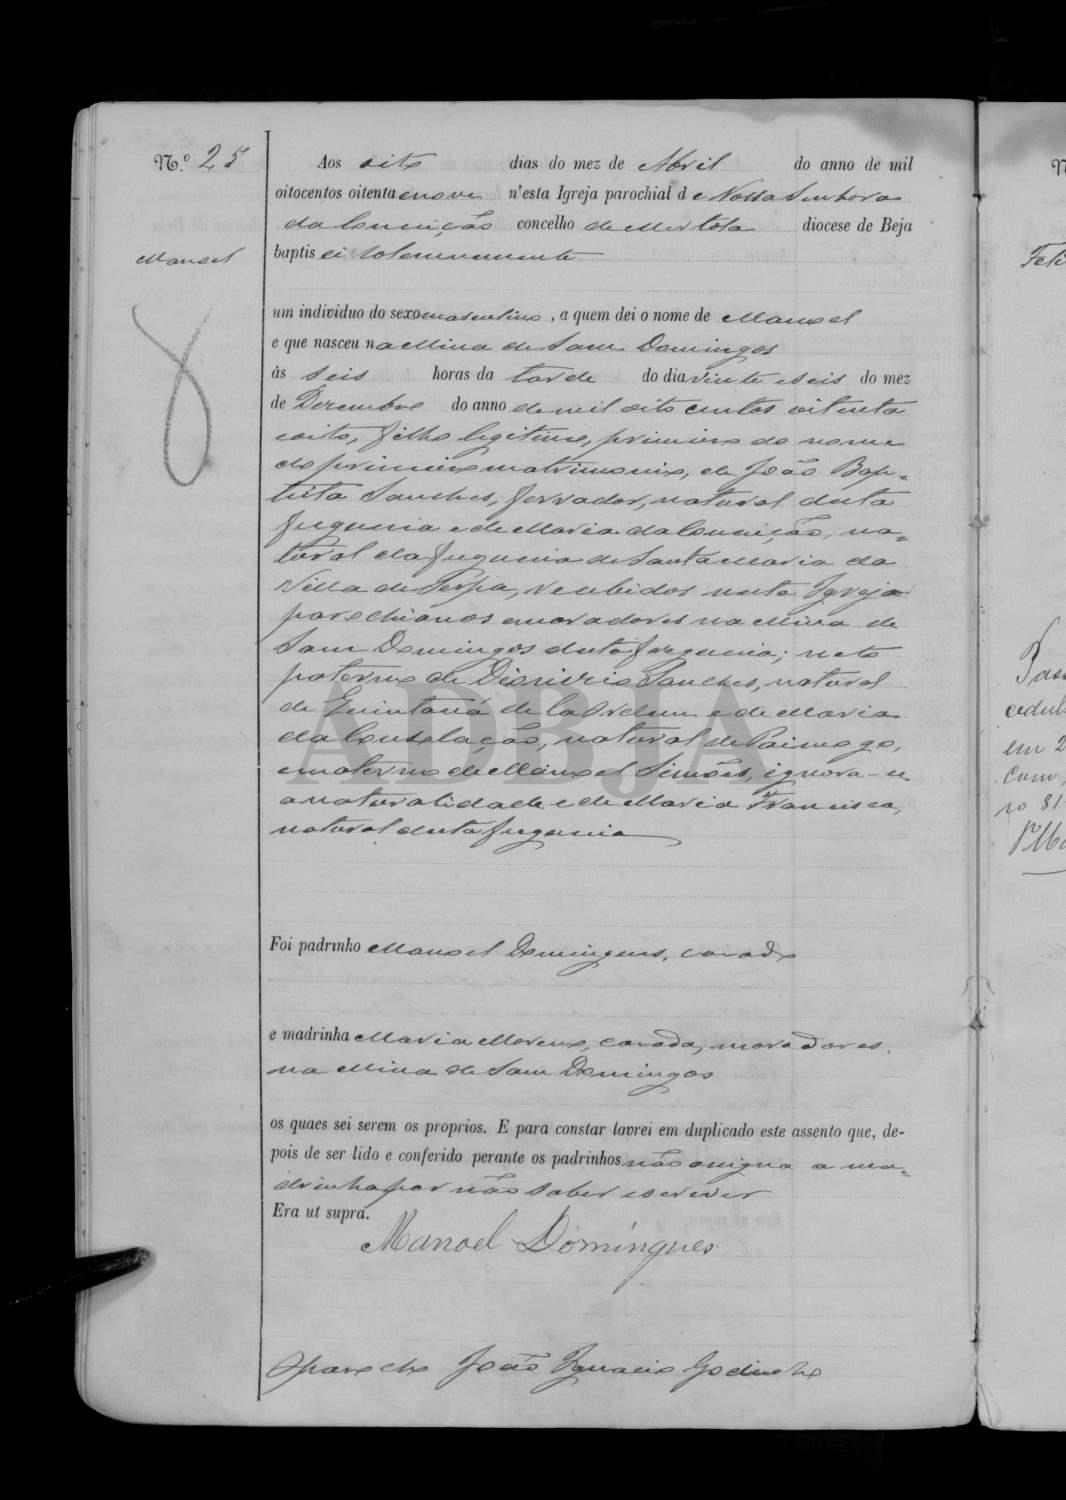 Nº 25
Manoel
Aos oito dias do mez de Abril do anno de mil
oitocentos oitenta e nove n'esta Igreja parochial de Nossa Senhora
da Conceição concelho de Mertola diocese de Beja
baptisei solemnemente
um individuo do sexo masculino, a quem dei o nome de Manoel
e que nasceu na Mina de Sam Domingos
ás seis horas da tarde do dia vinte e seis do mez
de Dezembro do anno de mil oito centos oitenta
e oito, filho legitimo, primeiro do nome
do primeiro matrimonio, de João Bap-
tista Sanches, ferrador, natural desta
freguezia e de Maria da Conceição, na-
tural da freguezia de Santa Maria da
Villa de Serpa, recebidos nesta Igreja
parochianos e moradores na Mina de
Sam Domingos desta freguezia; neto
paterno de Dionizio Sanches, natural
de Quintaná de la Orden e de Maria
da Consolação, natural de Paimogo,
e materno de Manoel Simões, ignora-se
a naturalidade e de Maria Francisca,
natural desta freguezia
Foi padrinho Manoel Domingues, casado
e madrinha Maria Moreno, casada, moradores
na Mina de Sam Domingos
os quaes sei serem os proprios. E para constar lavrei em duplicado este assento que, de-
pois de ser lido e conferido perante os padrinhos não assigna a ma-
drinha por não saber escrever
Era ut supra.
Manoel Domingues
O parocho João Ignacio Godinho
ADBJA
Pass
cedul
em 2
Com
ro 81